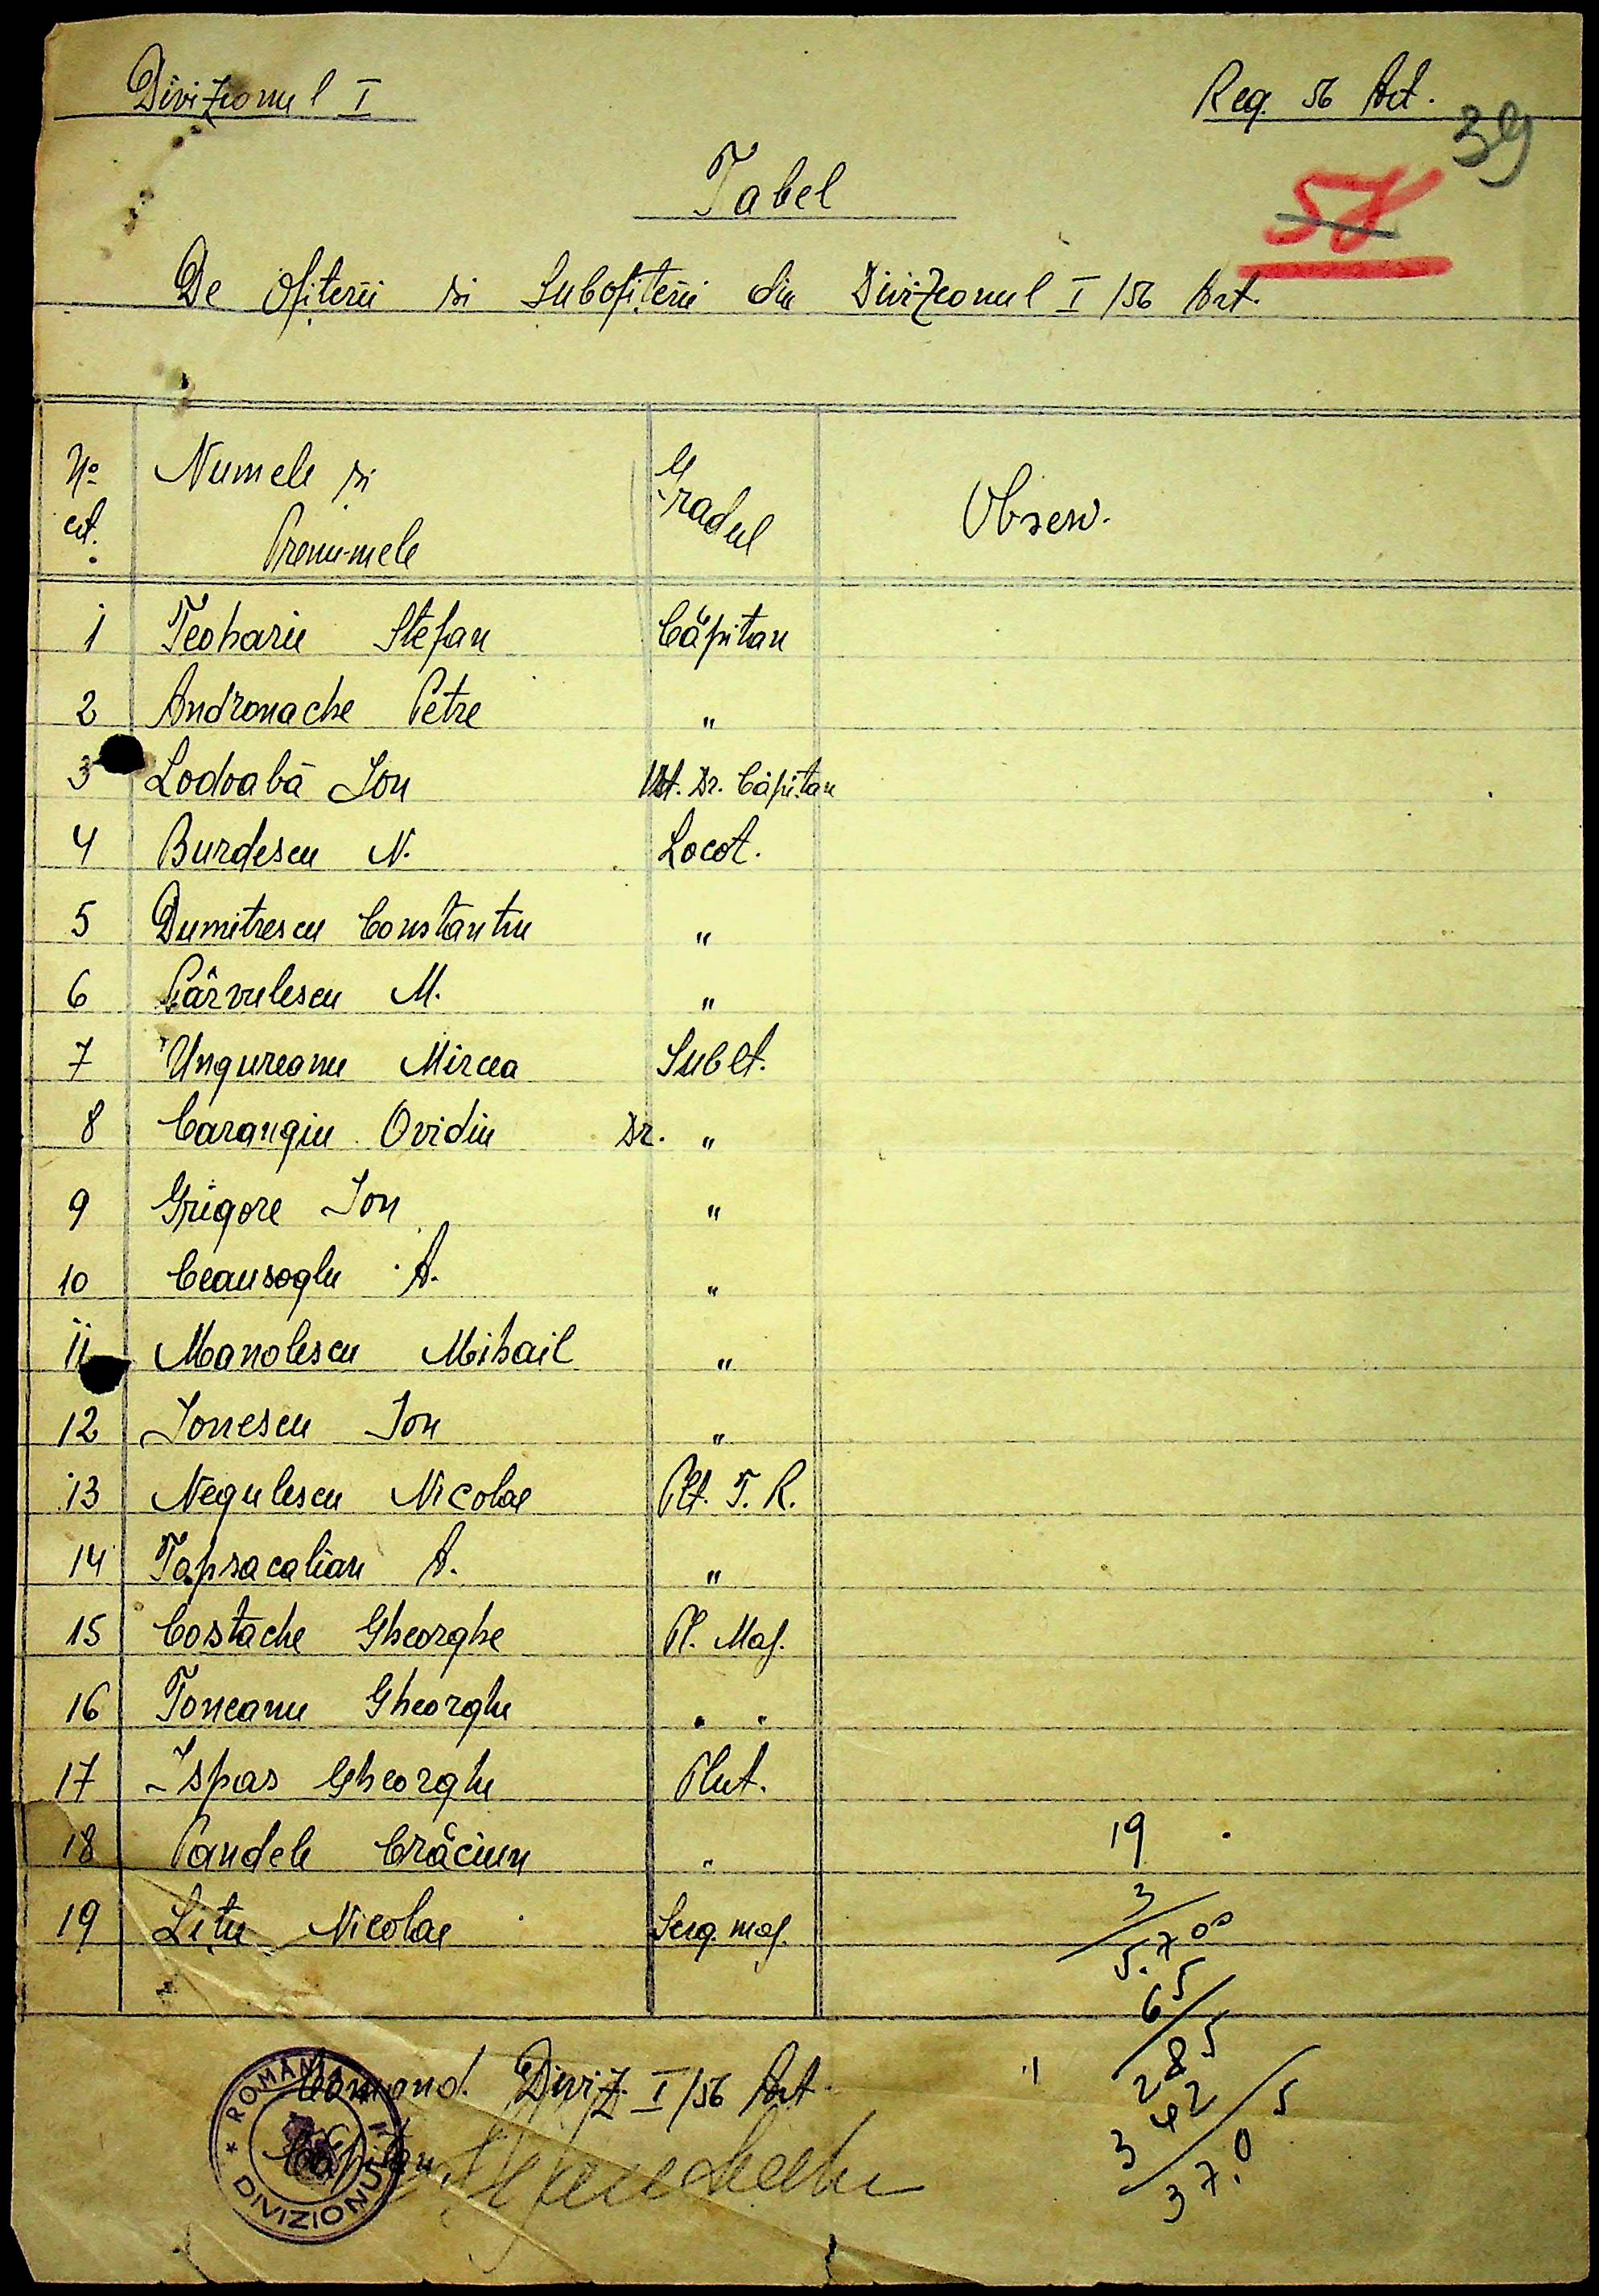 Divizionul I
Reg. 56 Art.
39
Tabel
57
De Ofiteri si Subofiteri din Divizionul I /56 Art.
No crt. Numele si Prenumele Gradul Observ.
1 Teoharie Stefan Căpitan
2 Andronache Petre "
3 Lodoabă Ion Vet. Dr. Căpitan
4 Burdescu N. Locot.
5 Dumitrescu Constantin "
6 Pârvulescu M. "
7 Ungureanu Mircea Sublt.
8 Carangiu Ovidiu Dr. "
9 Grigore Ion "
10 Ceausoglu A. "
11 Manolescu Mihail "
12 Ionescu Ion "
13 Negulescu Nicolae Plt. T. R.
14 Tapsacalian A. "
15 Costache Gheorghe Pl. Maj.
16 Toneanu Gheorghe " "
17 Ispas Gheorghe Plut.
18 Pandele Crăciun "
19 Lițu Nicolae Serg. maj.
19
3
5.700
65
285
342
37.05
Comand. Diviz. I/56 Art.
Căpitan
ROMANIA
DIVIZIONUL